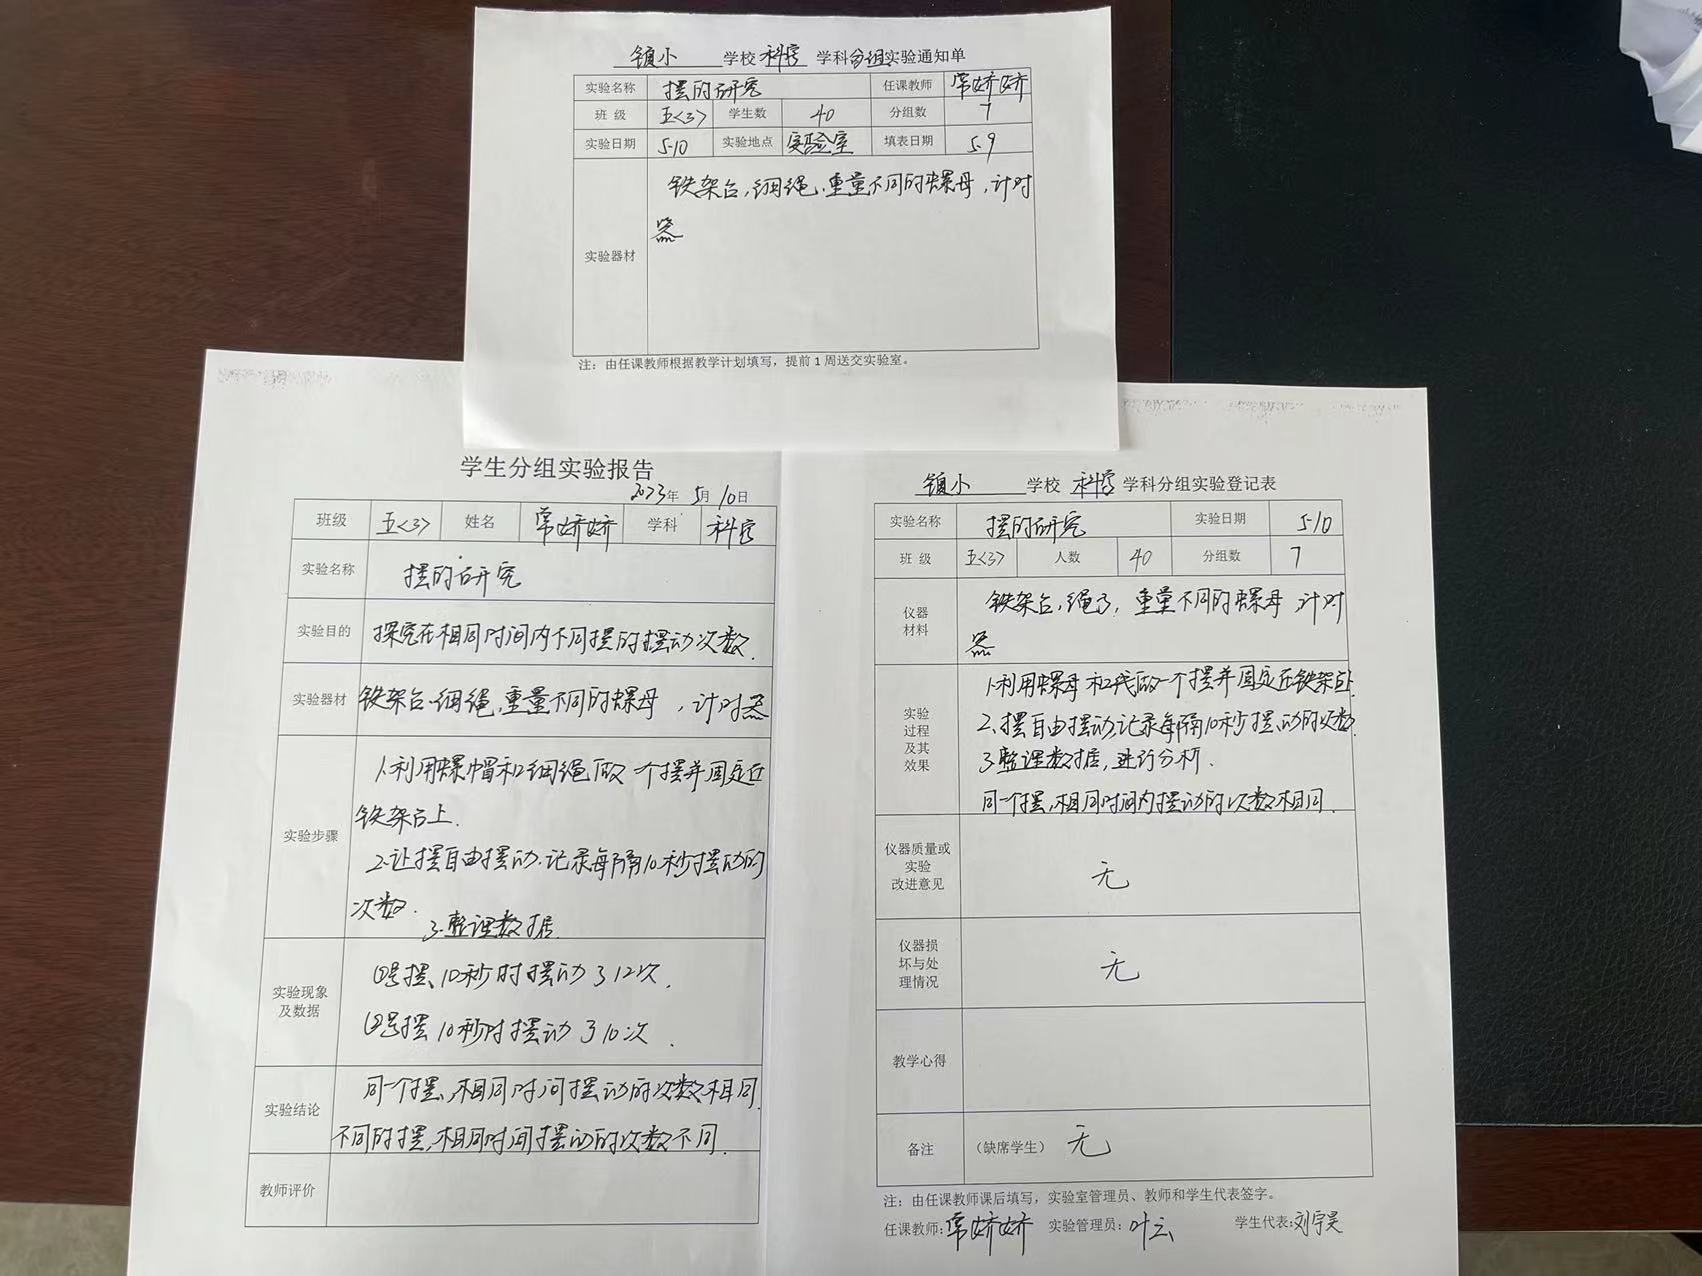 镇小 学校 科学 学科分组实验通知单
实验名称 摆的研究 任课教师 常娇娇
班 级 五<3> 学生数 40 分组数 7
实验日期 5.10 实验地点 实验室 填表日期 5.9
铁架台,细绳,重量不同的螺母,计时
器
实验器材
注:由任课教师根据教学计划填写,提前1周送交实验室。
学生分组实验报告
2023年 5月 10日
班级 五<3> 姓名 常娇娇 学科 科学
实验名称 摆的研究
实验目的 探究在相同时间内不同摆的摆动次数.
实验器材 铁架台、细绳,重量不同的螺母,计时器
1.利用螺帽和细绳做一个摆并固定在
铁架台上.
实验步骤
2.让摆自由摆动.记录每隔10秒摆动的
次数.
3.整理数据
①号摆、10秒时摆动了12次.
实验现象
及数据
②号摆10秒时摆动了10次.
同一个摆,相同时间摆动的次数相同.
实验结论
不同的摆,相同时间摆动的次数不同.
教师评价
镇小 学校 科学 学科分组实验登记表
实验名称 摆的研究 实验日期 5.10
班 级 五<3> 人数 40 分组数 7
仪器
材料
铁架台,绳子,重量不同的螺母 计时
器
实验
过程
及其
效果
1.利用螺母和线做一个摆并固定在铁架台上.
2.摆自由摆动,记录每隔10秒摆动的次数.
3.整理数据,进行分析.
同一个摆,相同时间内摆动的次数相同.
仪器质量或
实验
改进意见
无
仪器损
坏与处
理情况
无
教学心得
备注 (缺席学生) 无
注:由任课教师课后填写,实验室管理员、教师和学生代表签字。
任课教师:常娇娇 实验管理员:叶云 学生代表:刘宇昊